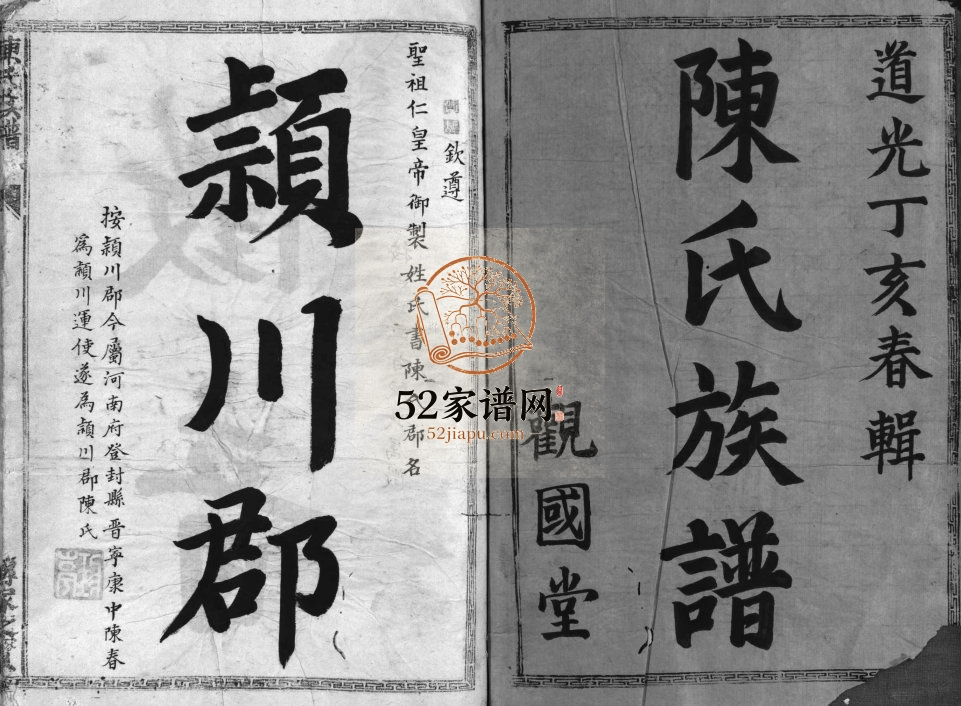 道光丁亥春輯
陳氏族譜
觀國堂
欽遵
聖祖仁皇帝御製姓氏書陳郡名
潁川郡
按潁川郡今屬河南府登封縣晉寧康中陳春
為潁川運使遂為潁川郡陳氏
52家谱网
52jiapu.com